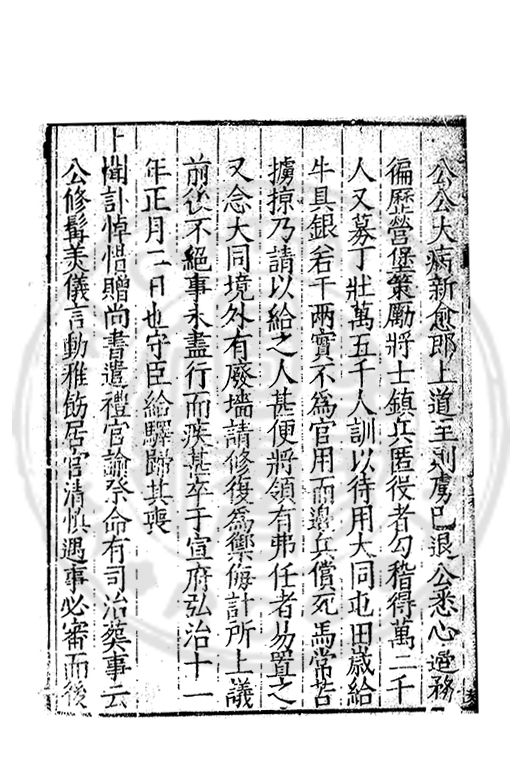 公公大病新愈即上道至則虜已退公悉心邊務
徧歷營堡策勵將士鎮兵匿役者勾稽得萬二千
人又募丁壯萬五千人訓以待用大同屯田歲給
牛具銀若干兩實不爲官用而邊兵償死馬常苦
擄掠乃請以給之人甚便將領有弗任者易置之
又念大同境外有廢墻請修復爲禦侮計所上議
前後不絕事未盡行而疾甚卒于宣府弘治十一
年正月二日也守臣給驛歸其喪
上聞訃悼惜贈尚書遣禮官諭祭命有司治葬事云
公修髯美儀言動雅飭居官清慎遇事必審而後